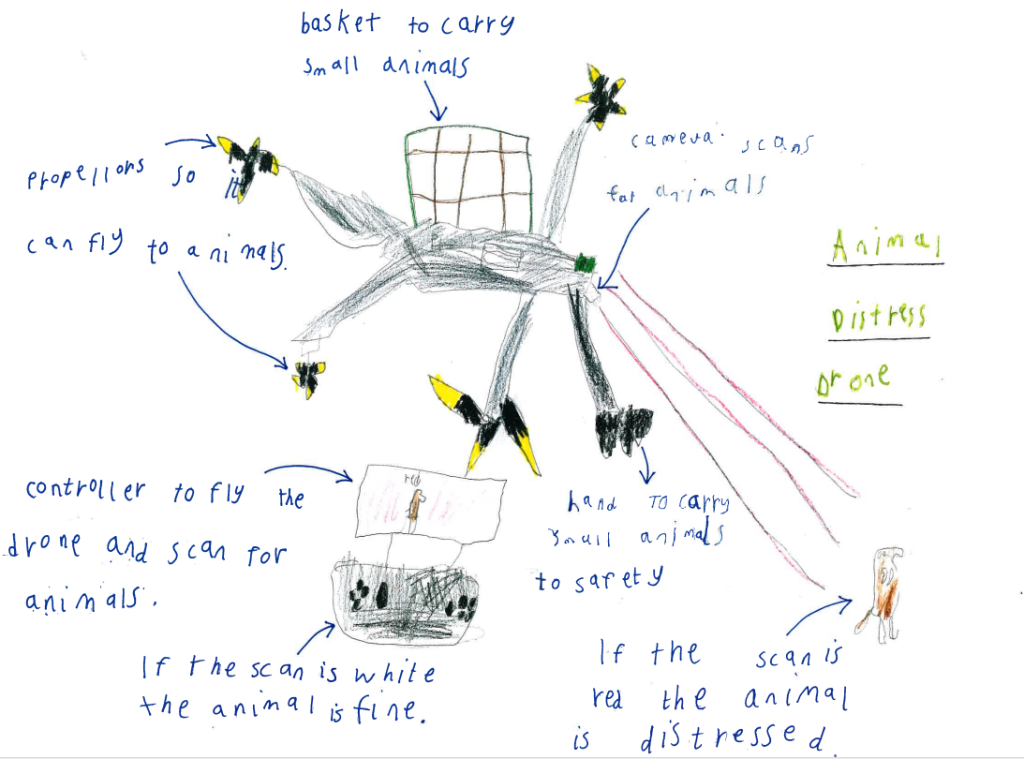 basket to carry
small animals
propellors so it
can fly to animals.
camera scans
for animals
Animal
Distress
Drone
controller to fly the
drone and scan for
animals.
red
hand to carry
small animals
to safety
If the scan is white
the animal is fine.
If the scan is
red the animal
is distressed.